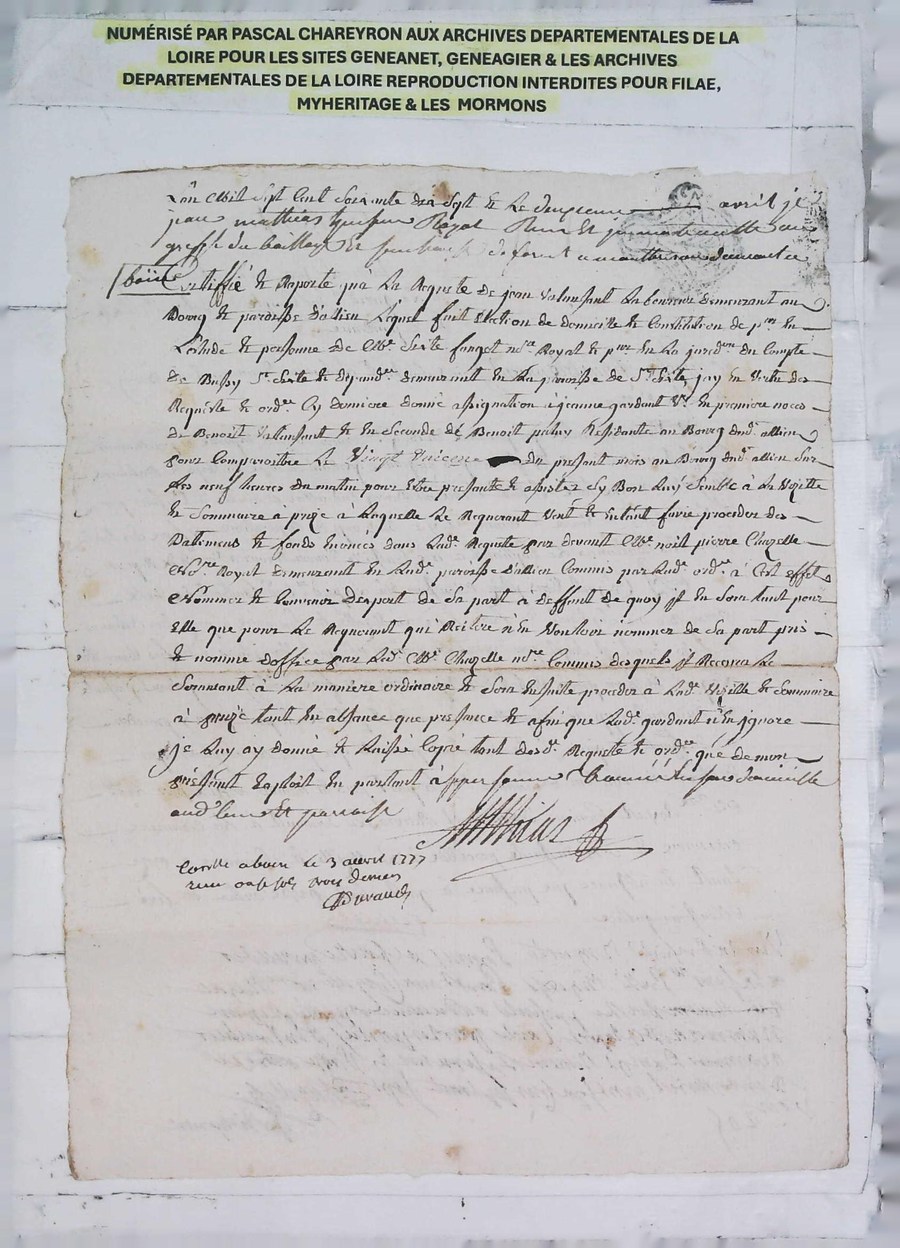 NUMÉRISÉ PAR PASCAL CHAREYRON AUX ARCHIVES DEPARTEMENTALES DE LA
LOIRE POUR LES SITES GENEANET, GENEAGIER & LES ARCHIVES
DEPARTEMENTALES DE LA LOIRE REPRODUCTION INTERDITES POUR FILAE,
MYHERITAGE & LES MORMONS
L'an Mil Sept Cent Soixante dix Sept & Le avril je
jean mathias Royal
greffe du bailliage
boën Certiffié & Raporte qu'a La Requeste de jean Valansant Laboureur demeurant au
Bourg & paroisse d'allieu Lequel fait Election de domicille & Constitution de pr en
L'etude & personne de Me Sixte fanget nore Royal & pr en La jurdon du Compté
de Bussy St Sixte & depandces demeurant en La paroisse de St Sixte, jay en Vertu des
Requeste & ordce Cy derniere donné assignation à jeanne gardant Ve en premiere noces
de Benoit Valansant & en Seconde de Benoit Residante au Bourg dud allieu
pour Comparoistre Le Vingt du present mois au Bourg dud allieu Sur
Les neuf heures du matin pour Etre presante & assister Sy Bon Luy Semble à La Vizitte
& Sommaire à prize à Laquelle Le Requerant Vent & Entant faire proceder des
Batimens & fonds Enoncés dans Lade Requeste par devant Me noel pierre Chazelle
Nore Royal demeurant en Lade paroisse d'allieu Commis par Lade ordce à Cest effet
Nommer & Convenir d'expert de Sa part à deffaut de quoy jl En Sera tant pour
Elle que pour Le Requerant qui Reitere n'en Vouloir nommer de Sa part pris
& nommé d'office par Led Me Chazelle nore Commis desquels jl Recevra Le
Serment à La maniere ordinaire & Sera Ensuite proceder à Lade Vizitte & Sommaire
à prize tant en absance que presance & afin que Lade gardant n'en jgnore
je Luy ay donné & Laissé Copie tant desd Requeste & ordce que de mon
présent Exploit en parlant à sa personne domicille
aud lieu et paroisse
Mathias
Conllé a boën le 3 avril 1777
reçu sols trois deniers
Durand